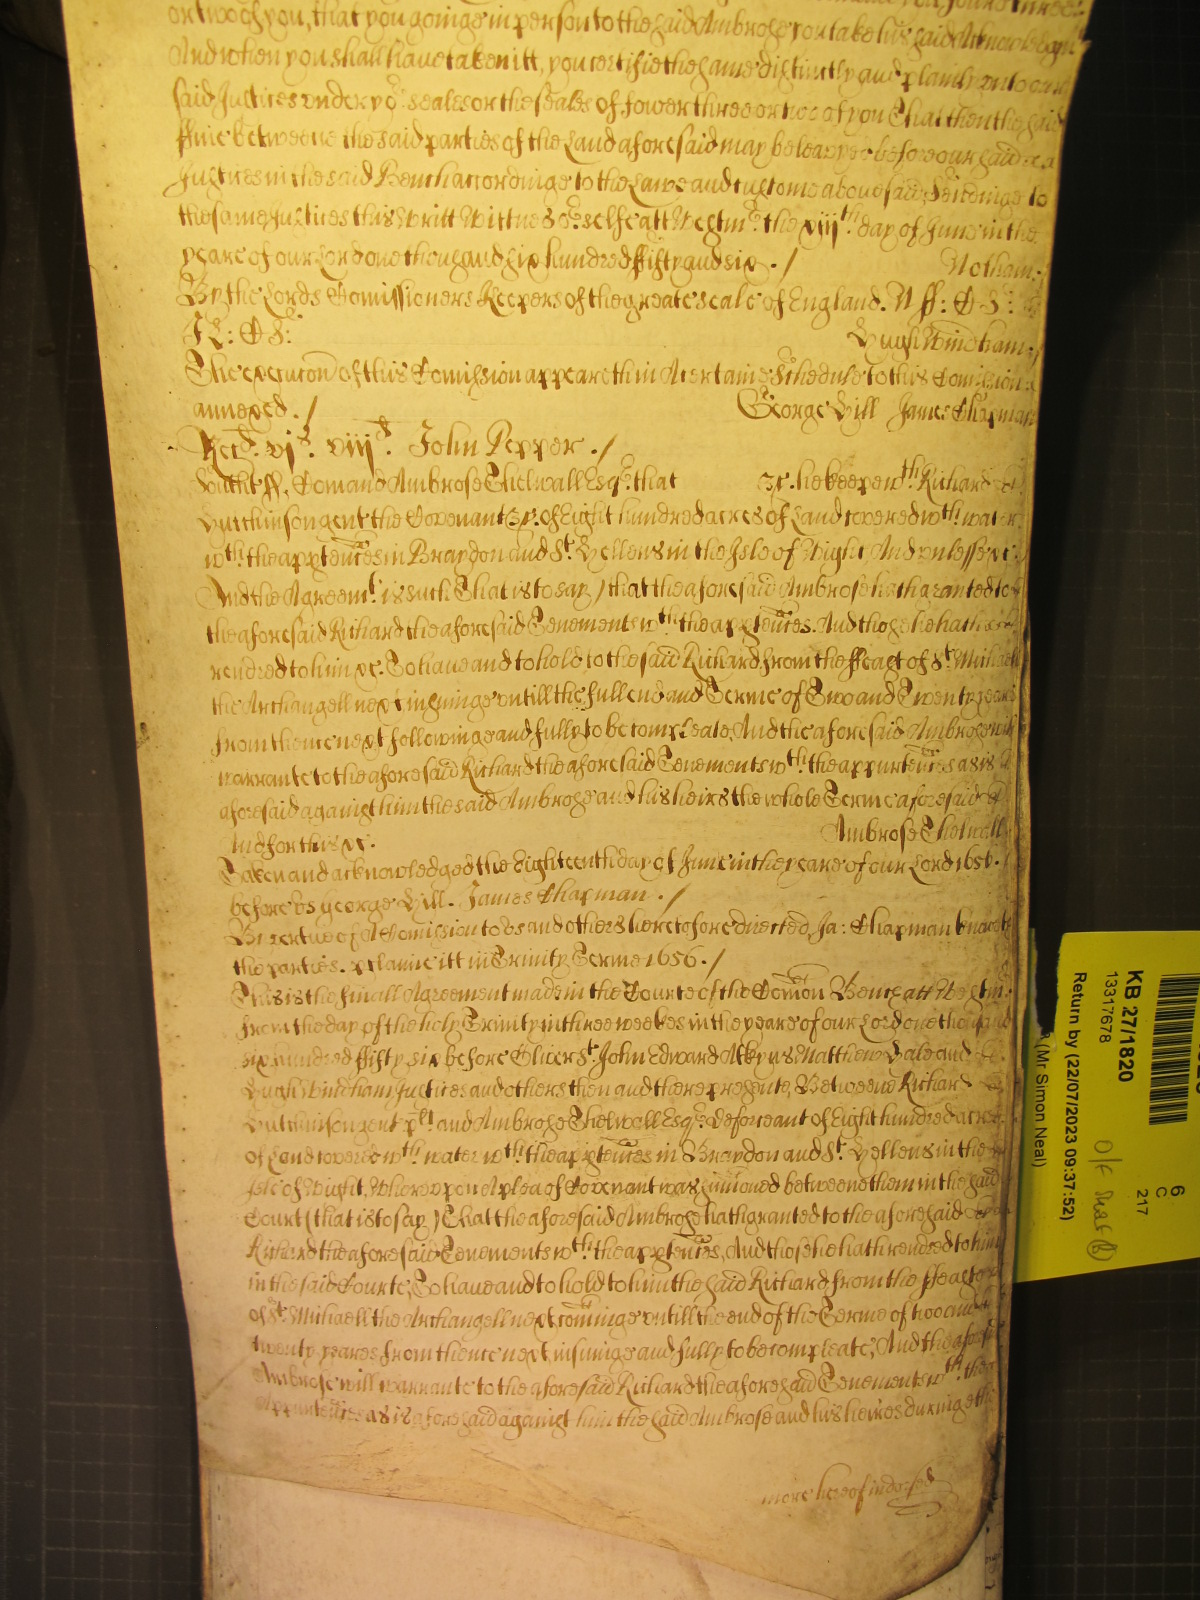 or two of you, that you goinge in person to the said Ambrose, you take his said Acknowledgmt
And when you shall have taken itt, you certifie the same distinctly and plainly unto our
said Justices under yor. seales or the seales of fower three or two of you That then the said
ffine betweene the said parties of the Land aforesaid may be leavyed before our said
Justices in the said Bench accordinge to the Lawe and custome abovesaid, Sendinge to
the same Justices this Writt Wittnes or. selfe att Westmr. the xiijth. day of June in the
yeare of our Lord one thousand six hundred ffifty and six. / Notham.
By the Lords Comissioners Keepers of the greate seale of England. N ff: C S:
J L: C S: Hugh Windham.
The execucon of this Comission appeareth in A certaine Schedule to this Comission
annexed. / George Hill James Chapman
Recd. vjs. viijd. John Pepper. /
Southt ss. Comand Ambrose Thelwall Esqr. that &c. he keepe wth. Richard
Hutchinson gent the Covenant &c. of Eight hundred acres of Land covered wth. water
wth. the apptennces in Braydon and St. Hellens in the Isle of Wight, And unlesse &c.
And the Agreemt. is such That is to say, that the aforesaid Ambrose hath granted to
the aforesaid Richard the aforesaid Tenements wth. the apptennces. And those he hath
rendred to him &c. To have and to hold to the said Richard from the ffeast of St. Michaell
the Archangell next insuinge untill the full end and Terme of Two and Twenty yeares
from thence next followinge and fully to be compleate, And the aforesaid Ambrose will
warrante to the aforesaid Richard the aforesaid Tenements wth. the appurtennces as is
aforesaid against him the said Ambrose and his heirs the whole Terme aforesaid
And for this &c. Ambrose Thelwall
Taken and acknowledged the Eighteenth day of June in the yeare of our Lord 1656.
before us George Hill. James Chapman. /
By vertue of A Comission to us and others heretofore directed, Ja: Chapman knoweth
the parties. pclame itt in Trinity Terme 1656. /
This is the finall Agreement made in the Courte of the Comon Bench att Westmr.
from the day of the holy Trinity in three weekes in the yeare of our Lord one thousand
six hundred ffifty six before Oliver St. John Edward Atkyns Matthew Hale and
Hugh Windham Justices and others then and there presente, Betweene Richard
Hutchinson gent plt. and Ambrose Thelwall Esqr. deforceant of Eight hundred acres
of Land covered wth. water wth. the apptennces in Braydon and St. Hellens in the
Isle of Wight, Whereupon A plea of Covenant was sumoned betweene them in the said
Court (that is to say) That the aforesaid Ambrose hath granted to the aforesaid
Richard the aforesaid Tenements wth. the apptennces, And those he hath rendred to him
in the said Courte, To have and to hold to him the said Richard from the ffeast
of St. Michaell the Archangell next cominge untill the end of the Terme of two and
twenty yeares from thence next insuinge and fully to be compleate, And the aforesaid
Ambrose will warrante to the aforesaid Richard the aforesaid Tenements wth. the
Appurtennces as is aforesaid against him the said Ambrose and his heires duringe the
more hereof indorsed
KB 27/1820
13317678
Return by (22/07/2023 09:37:52)
(Mr Simon Neal)
6
C
217